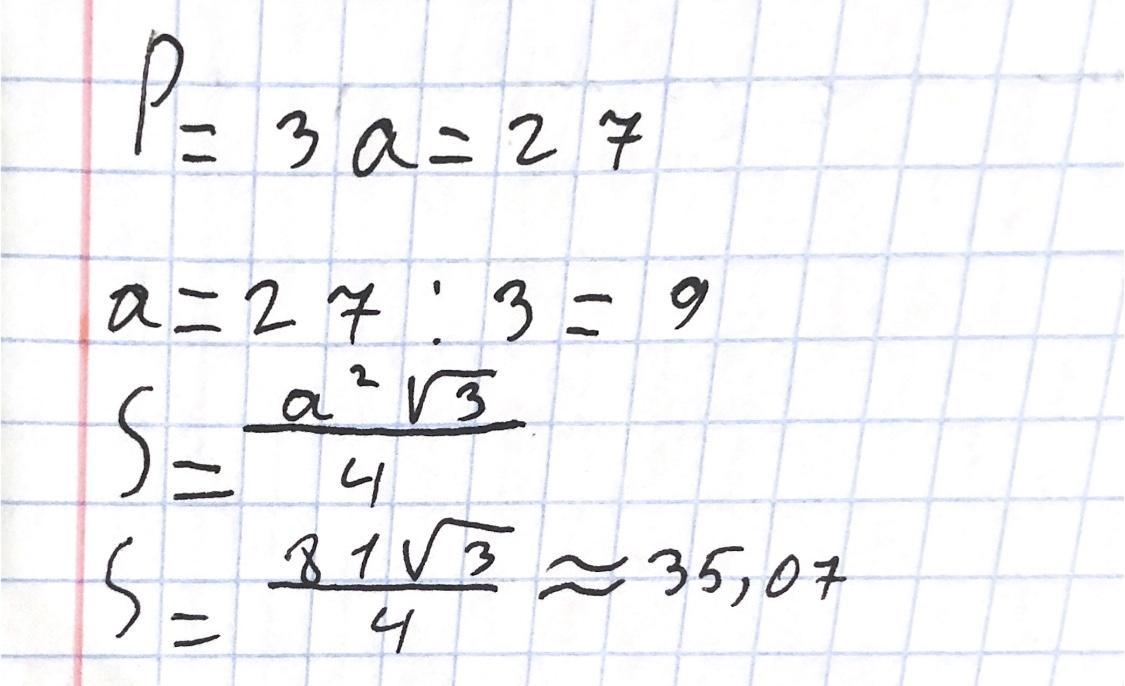 P = 3a = 27
a = 27 : 3 = 9
S = a²√3 / 4
S = 81√3 / 4 ≈ 35,07